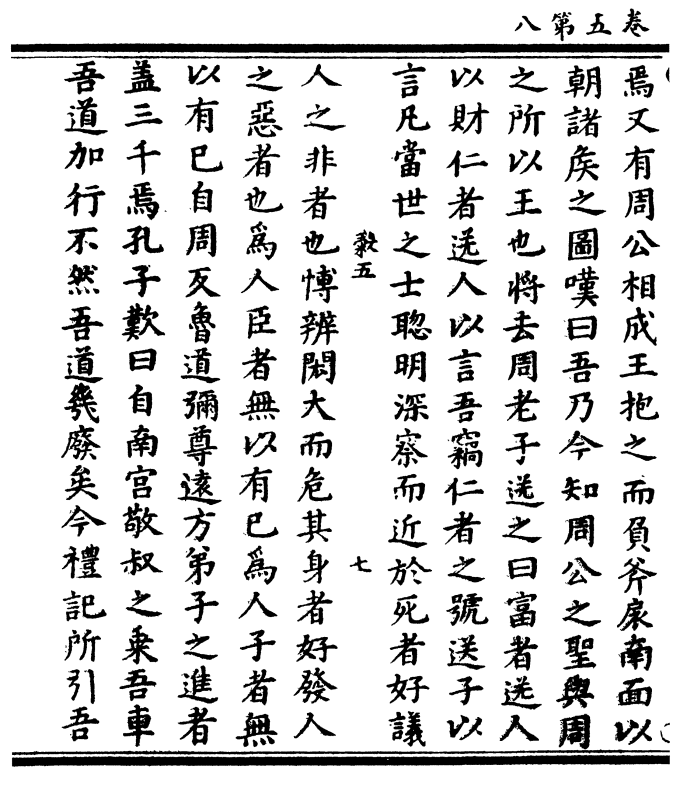 卷五第八
焉又有周公相成王抱之而負斧扆南面以
朝諸矦之圖嘆曰吾乃今知周公之聖與周
之所以王也將去周老子送之曰富者送人
以財仁者送人以言吾竊仁者之號送子以
言凡當世之士聦明深察而近於死者好議
穀五 七
人之非者也愽辨閎大而危其身者好發人
之惡者也為人臣者無以有己為人子者無
以有己自周反魯道彌尊遠方弟子之進者
盖三千焉孔子歎曰自南宫敬叔之乗吾車
吾道加行不然吾道幾廢矣今禮記所引吾